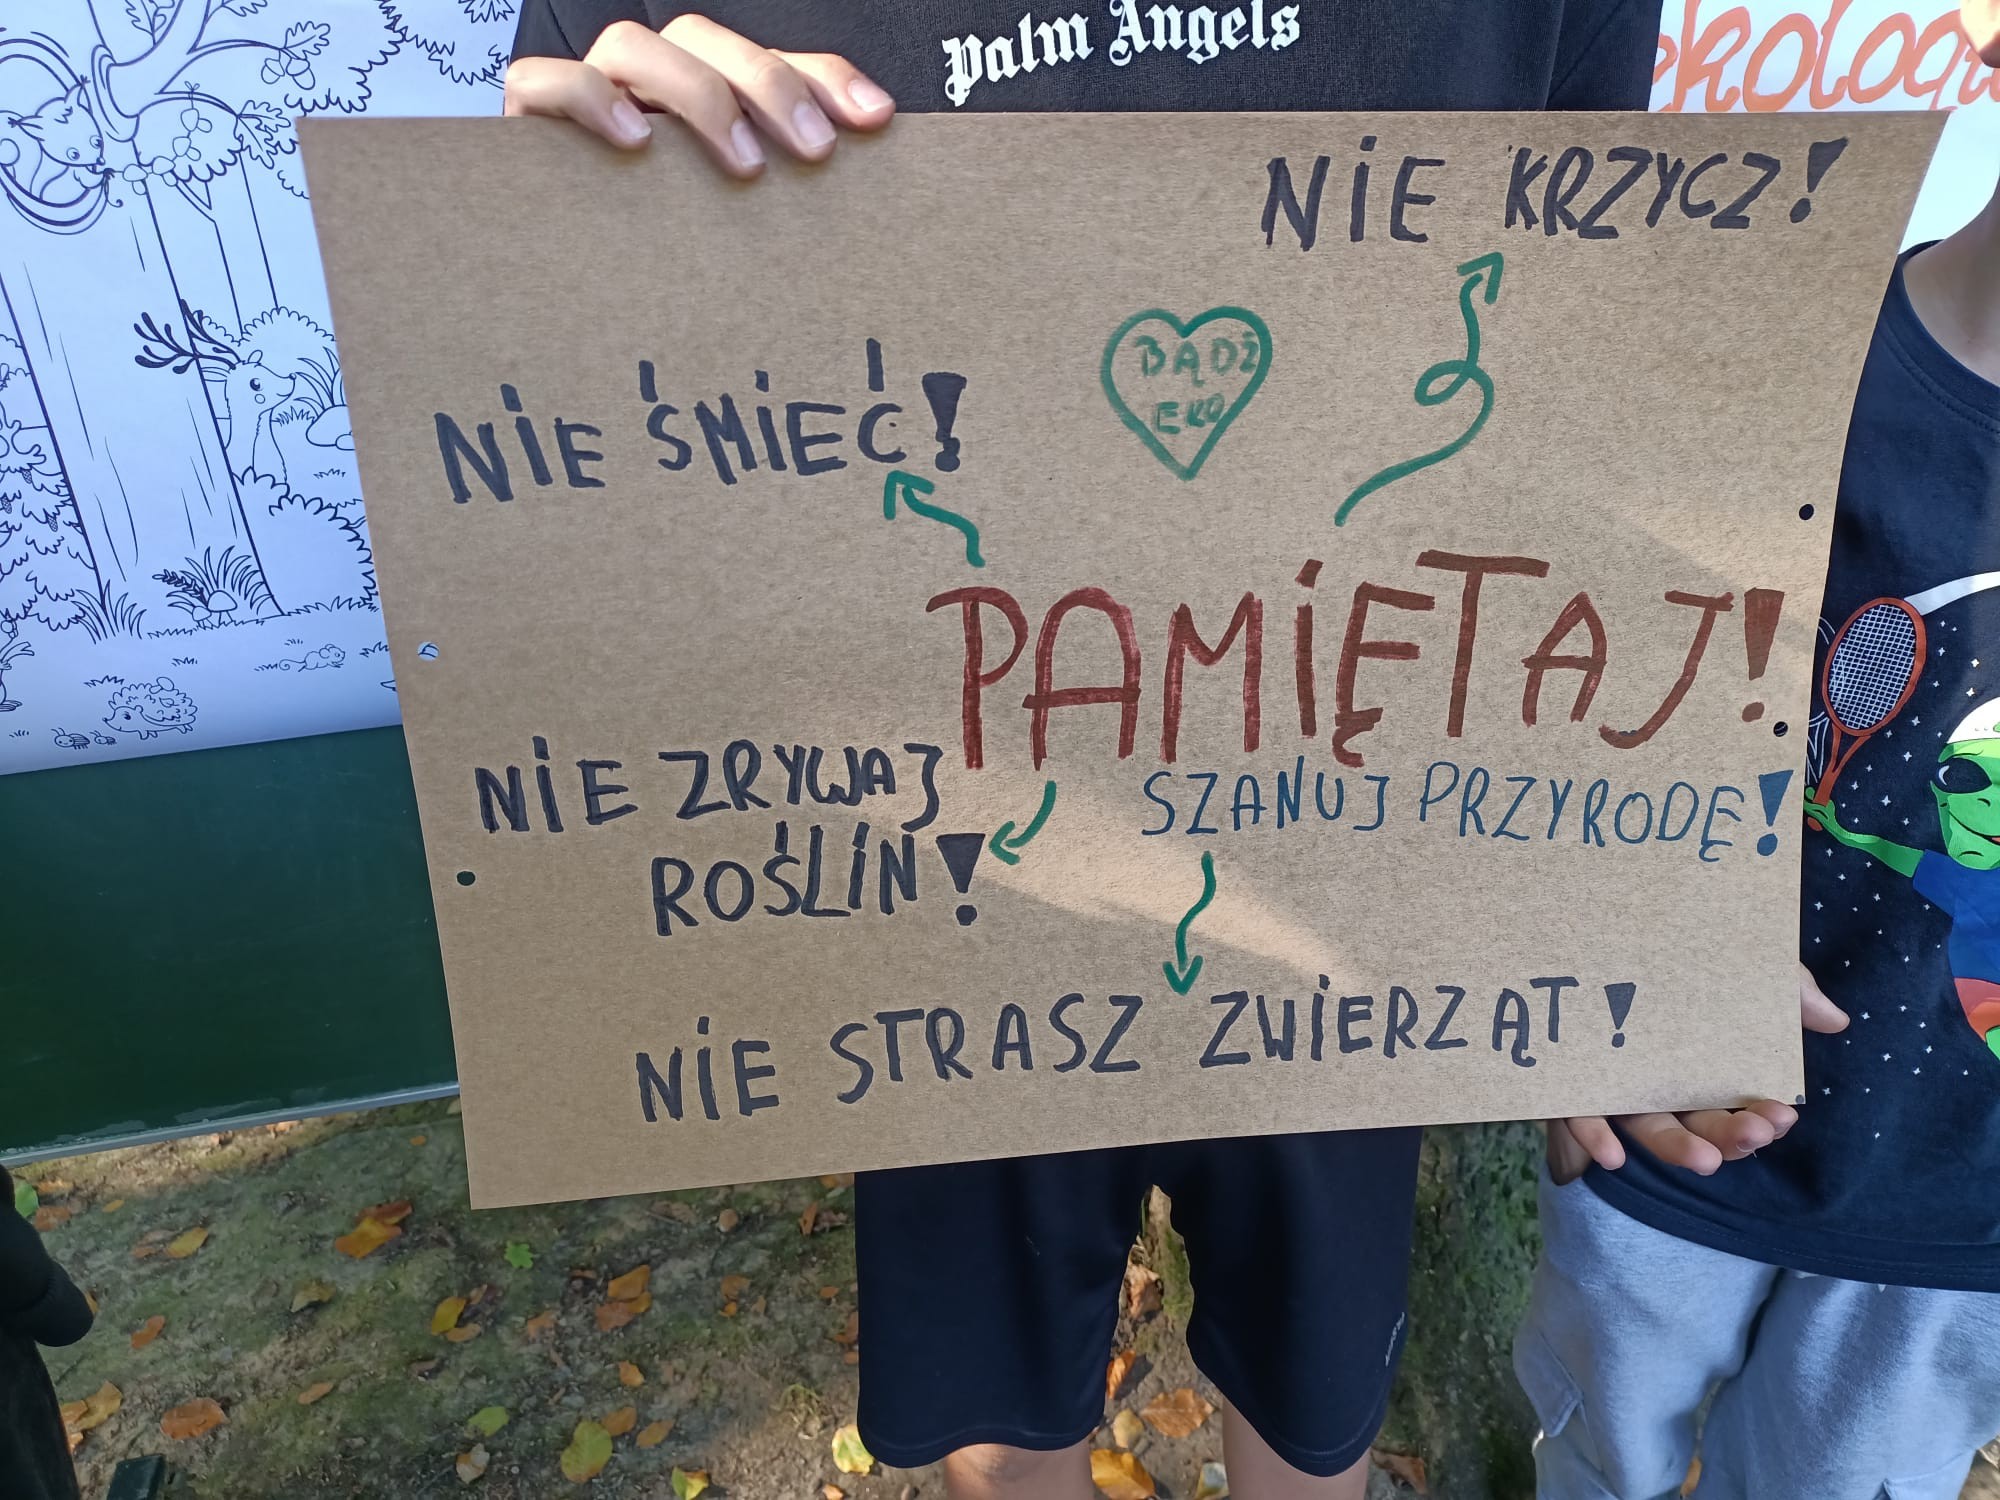 Palm Angels
ekologi
NIE KRZYCZ!
BĄDŹ
EKO
NIE ŚMIEĆ!
PAMIĘTAJ!
NIE ZRYWAJ
ROŚLIN!
SZANUJ PRZYRODĘ!
NIE STRASZ ZWIERZĄT!